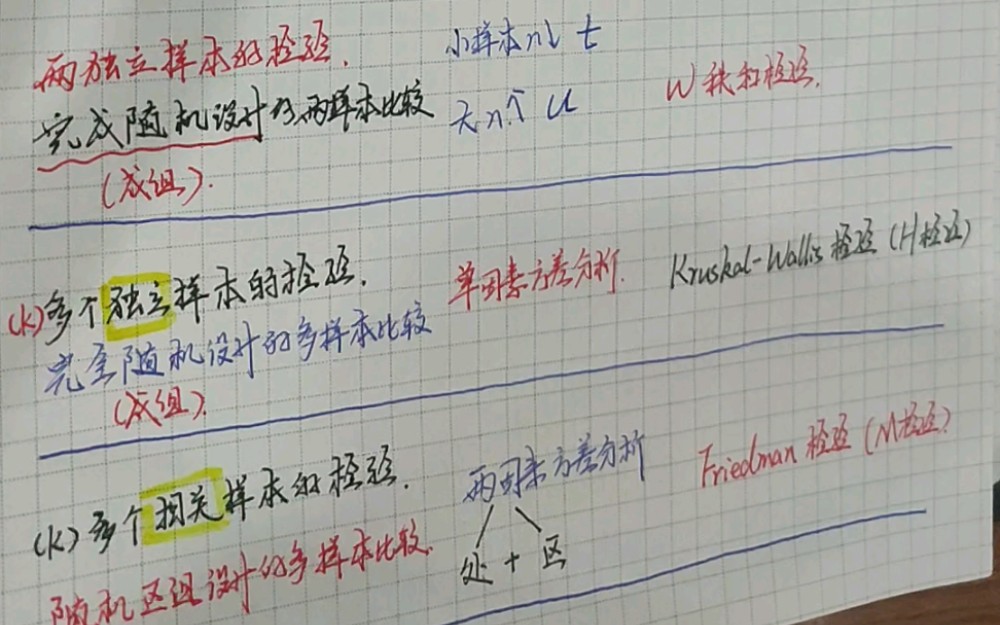 两独立样本的检验.
小样本n↓ t
完成随机设计的两样本比较
大n个 u
W秩和检验.
(成组).
(K)多个独立样本的检验.
单因素方差分析.
Kruskal-Wallis检验(H检验)
完全随机设计的多样本比较
(成组).
(K)多个相关样本的检验.
两因素方差分析
Friedman检验(M检验)
处+区
随机区组设计的多样本比较.